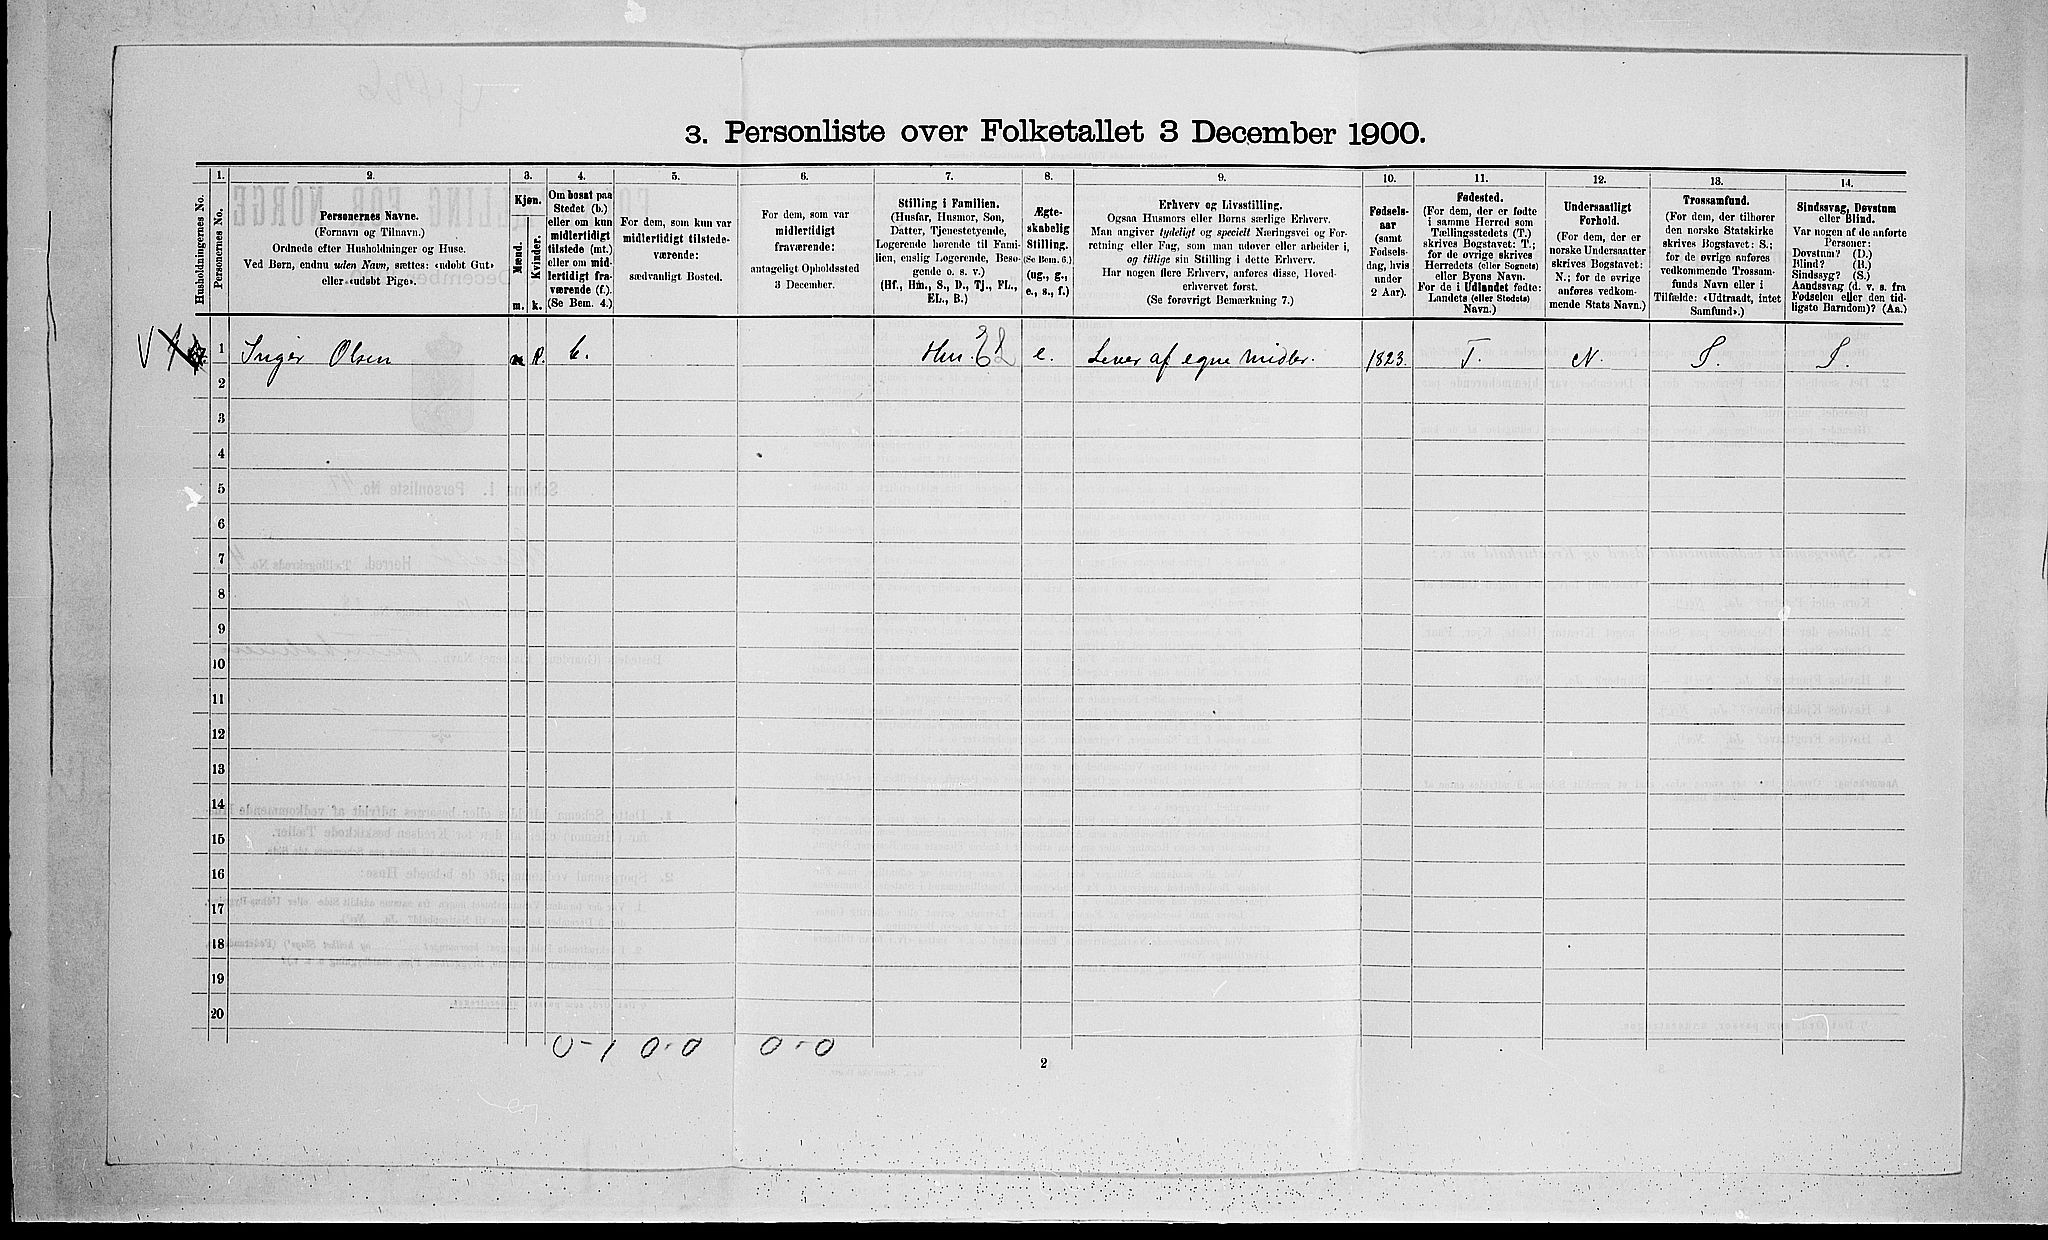 3. Personliste over Folketallet 3 December 1900.
Husholdningernes No.
1.
Personernes No.
2.
Personernes Navne.
(Fornavn og Tilnavn.)
Ordnede efter Husholdninger og Huse.
Ved Børn, endnu uden Navn, sættes: «udøbt Gut»
eller «udøbt Pige».
3.
Kjøn.
Mænd.
Kvinder.
m.
k.
4.
Om bosat paa
Stedet (b.)
eller om kun
midlertidigt
tilstede (mt.)
eller om mid-
lertidigt fra-
værende (f.).
(Se Bem. 4.)
5.
For dem, som kun var
midlertidigt tilstede-
værende:
sædvanligt Bosted.
6.
For dem, som var
midlertidigt
fraværende:
antageligt Opholdssted
3 December.
7.
Stilling i Familien.
(Husfar, Husmor, Søn,
Datter, Tjenestetyende,
Logerende hørende til Fami-
lien, enslig Logerende, Besø-
gende o. s. v.)
(Hf., Hm., S., D., Tj., FL.,
EL., B.)
8.
Ægte-
skabelig
Stilling.
(Se Bem. 6.)
(ug., g.,
e., s., f.)
9.
Erhverv og Livsstilling.
Ogsaa Husmors eller Børns særlige Erhverv.
Man angiver tydeligt og specielt Næringsvei og For-
retning eller Fag, som man udøver eller arbeider i,
og tillige sin Stilling i dette Erhverv.
Har nogen flere Erhverv, anføres disse, Hoved-
erhvervet først.
(Se forøvrigt Bemærkning 7.)
10.
Fødsels-
aar
(samt
Fødsels-
dag, hvis
under
2 Aar).
11.
Fødested.
(For dem, der er fødte
i samme Herred som
Tællingsstedets (T.)
skrives Bogstavet: T.;
for de øvrige skrives
Herredets (eller Sognets)
eller Byens Navn.
For de i Udlandet fødte:
Landets (eller Stedets)
Navn.)
12.
Undersaatligt
Forhold.
(For dem, der er
norske Undersaatter
skrives Bogstavet:
N.; for de øvrige
anføres vedkom-
mende Stats Navn.)
13.
Trossamfund.
(For dem, der tilhører
den norske Statskirke
skrives Bogstavet: S.;
for de øvrige anføres
vedkommende Trossam-
funds Navn eller i
Tilfælde: «Udtraadt, intet
Samfund».)
14.
Sindssvag, Døvstum
eller Blind.
Var nogen af de anførte
Personer:
Døvstum? (D.)
Blind? (B.)
Sindssyg? (S.)
Aandssvag (d. v. s. fra
Fødselen eller den tid-
ligste Barndom)? (Aa.)
1 Inger Olsen k. b. Hm. EL e. Lever af egne midler. 1823. T. N. S. S.
2
3
4
5
6
7
8
9
10
11
12
13
14
15
16
17
18
19
20
0-1 0-0 0-0
2